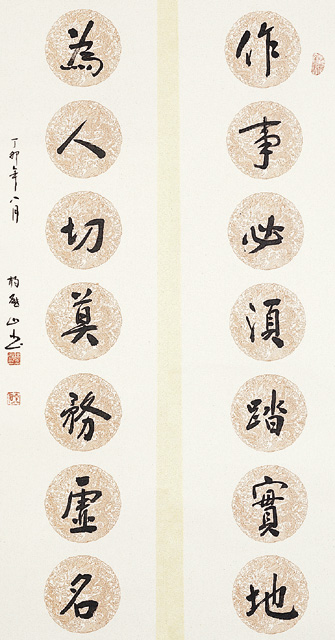 作事必須踏實地
為人切莫務虛名
丁卯年八月
山書